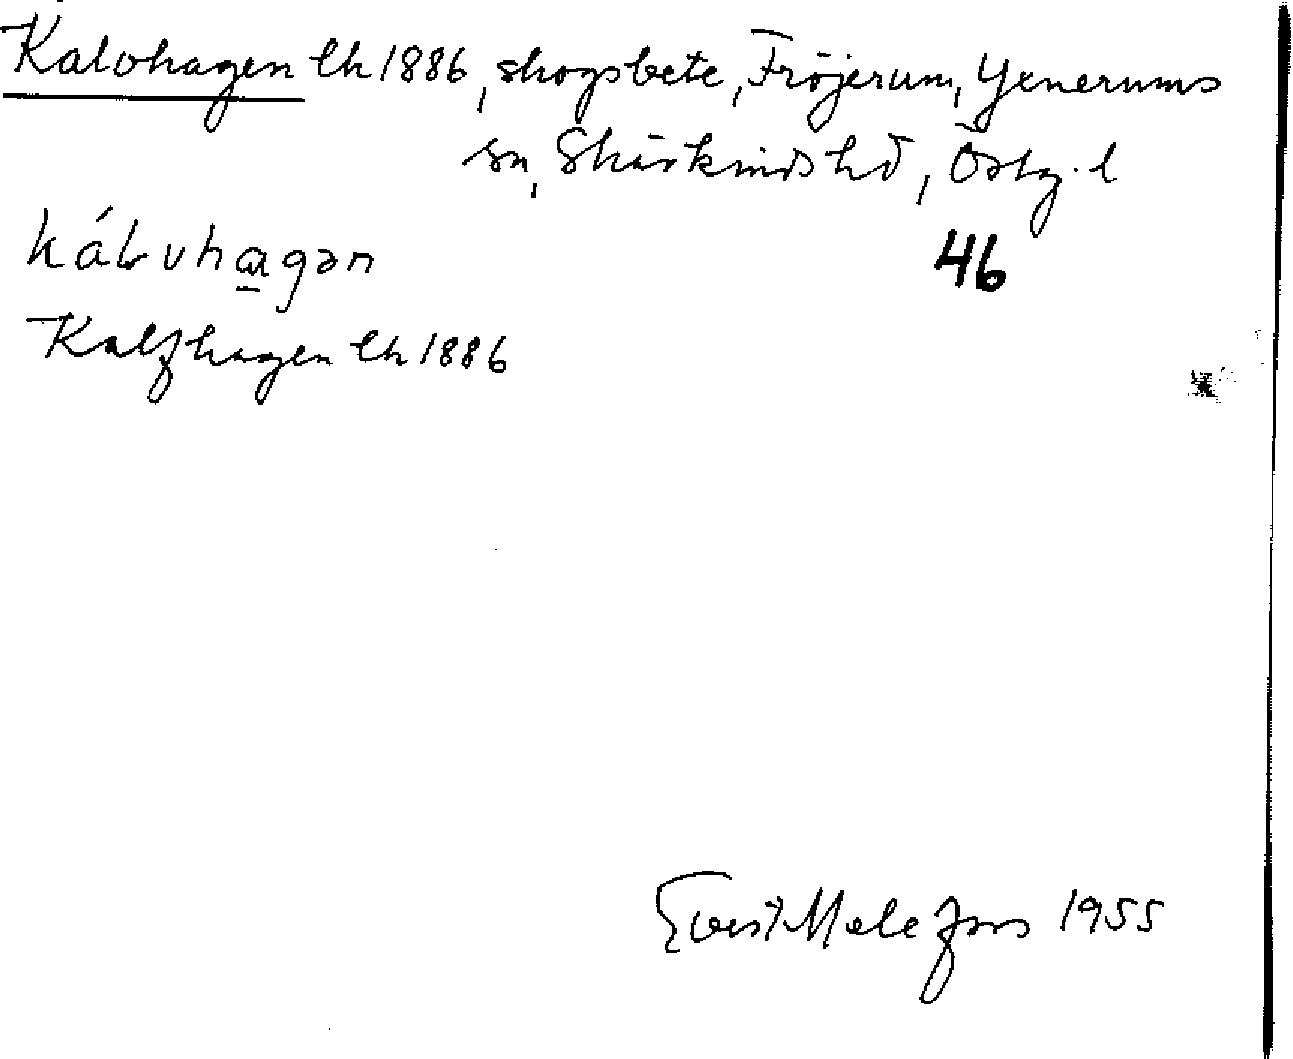 Kalvhagen lh 1886, skogsbete, Fröjerum, Yxnerums
sn, Skärkinds hd, Östg. l
kálvhagən
46
Kalfhagen lh 1886
Evert Melefors 1955